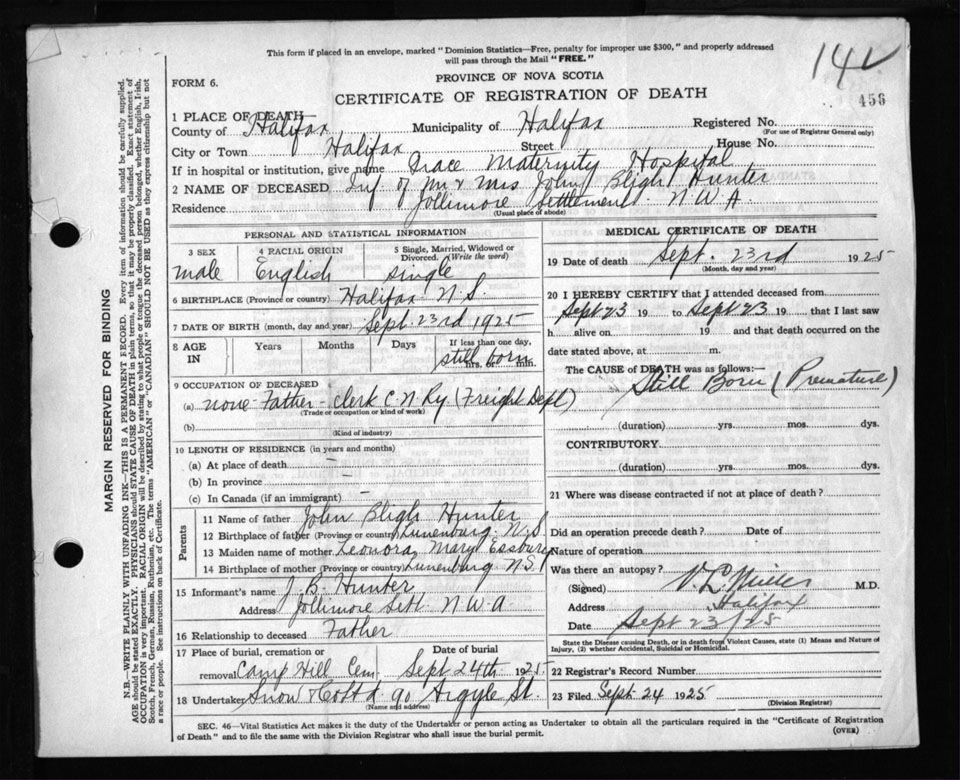 This form if placed in an envelope, marked "Dominion Statistics—Free, penalty for improper use $300," and properly addressed
will pass through the Mail "FREE."
142
FORM 6.
PROVINCE OF NOVA SCOTIA
CERTIFICATE OF REGISTRATION OF DEATH
456
1 PLACE OF DEATH
County of Halifax Municipality of Halifax Registered No.
(For use of Registrar General only)
City or Town Halifax Street House No.
If in hospital or institution, give name Grace Maternity Hospital
2 NAME OF DECEASED Inf. of Mr & Mrs John Bligh Hunter
Residence Jollimore Settlement N.W.A.
(Usual place of abode)
PERSONAL AND STATISTICAL INFORMATION
3 SEX 4 RACIAL ORIGIN 5 Single, Married, Widowed or Divorced. (Write the word)
male English single
6 BIRTHPLACE (Province or country) Halifax N.S.
7 DATE OF BIRTH (month, day and year) Sept. 23rd 1925
8 AGE IN Years Months Days If less than one day,
still born
hrs. or min.
9 OCCUPATION OF DECEASED
(a) none - Father - Clerk C.N.Ry (Freight Dept)
(Trade or occupation or kind of work)
(b)
(Kind of industry)
10 LENGTH OF RESIDENCE (in years and months)
(a) At place of death —
(b) In province —
(c) In Canada (if an immigrant) —
Parents
11 Name of father John Bligh Hunter
12 Birthplace of father (Province or country) Lunenburg N.S.
13 Maiden name of mother Leonora Mary
14 Birthplace of mother (Province or country) Lunenburg N.S.
15 Informant's name J. B. Hunter
Address Jollimore Settl. N.W.A
16 Relationship to deceased Father
17 Place of burial, cremation or removal Camp Hill Cem. Date of burial Sept 24th 1925
18 Undertaker Snow & Co Ltd. 90 Argyle St.
(Name and address)
MEDICAL CERTIFICATE OF DEATH
19 Date of death Sept. 23rd 1925
(Month, day and year)
20 I HEREBY CERTIFY that I attended deceased from
Sept 23 19 to Sept 23 19 that I last saw
h alive on 19 and that death occurred on the
date stated above, at m.
The CAUSE OF DEATH was as follows:—
Still Born (Premature)
(duration) yrs. mos. dys.
CONTRIBUTORY
(duration) yrs. mos. dys.
21 Where was disease contracted if not at place of death?
Did an operation precede death? Date of
Nature of operation
Was there an autopsy?
(Signed) V. L. Miller M.D.
Address Halifax
Date Sept 23/25
State the Disease causing Death, or in death from Violent Causes, state (1) Means and Nature of
Injury, (2) whether Accidental, Suicidal or Homicidal.
22 Registrar's Record Number
23 Filed Sept. 24 1925
(Division Registrar)
SEC. 46—Vital Statistics Act makes it the duty of the Undertaker or person acting as Undertaker to obtain all the particulars required in the "Certificate of Registration
of Death" and to file the same with the Division Registrar who shall issue the burial permit.
(OVER)
MARGIN RESERVED FOR BINDING
N.B.—WRITE PLAINLY WITH UNFADING INK—THIS IS A PERMANENT RECORD. Every item of information should be carefully supplied.
AGE should be stated EXACTLY. PHYSICIANS should STATE CAUSE OF DEATH in plain terms, so that it may be properly classified. Exact statement of
OCCUPATION is very important. RACIAL ORIGIN will be described by stating to what people or tongue the deceased person belonged, whether English, Irish,
Scotch, French, German, Russian, Ruthenian, etc. The terms "AMERICAN" or "CANADIAN" SHOULD NOT BE USED as they express citizenship but not
a race or people. See instructions on back of Certificate.